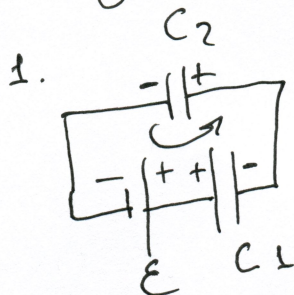 C2
1.
- +
- + + -
ε C1